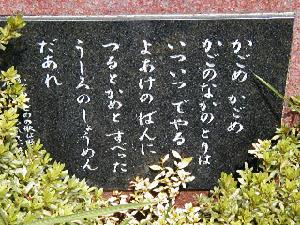 かごめ かごめ
かごのなかのとりは
いついつ でやる
よあけのばんに
つるとかめと すべった
うしろのしょうめん
だあれ